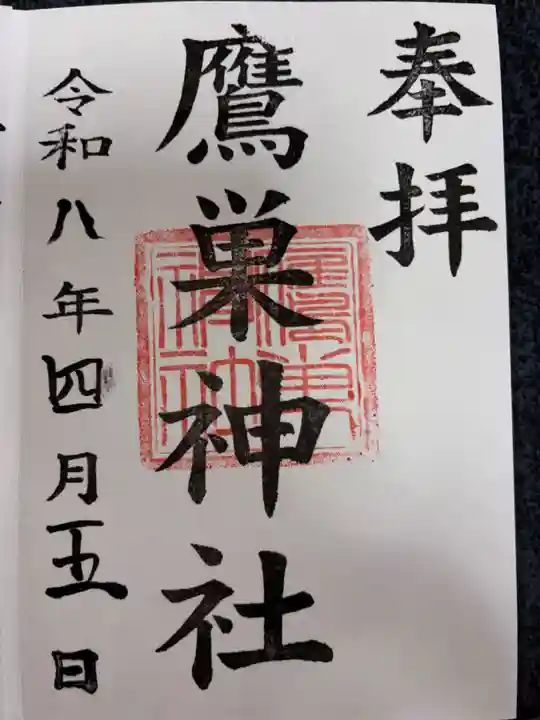 奉拝
鷹巣神社
令和八年四月五日